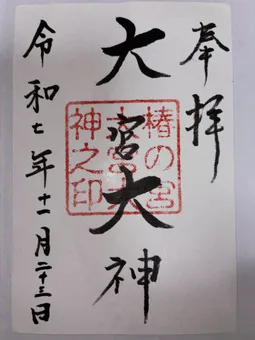 奉拝
大宮大神
令和七年十一月二十三日
椿の宮
神之印